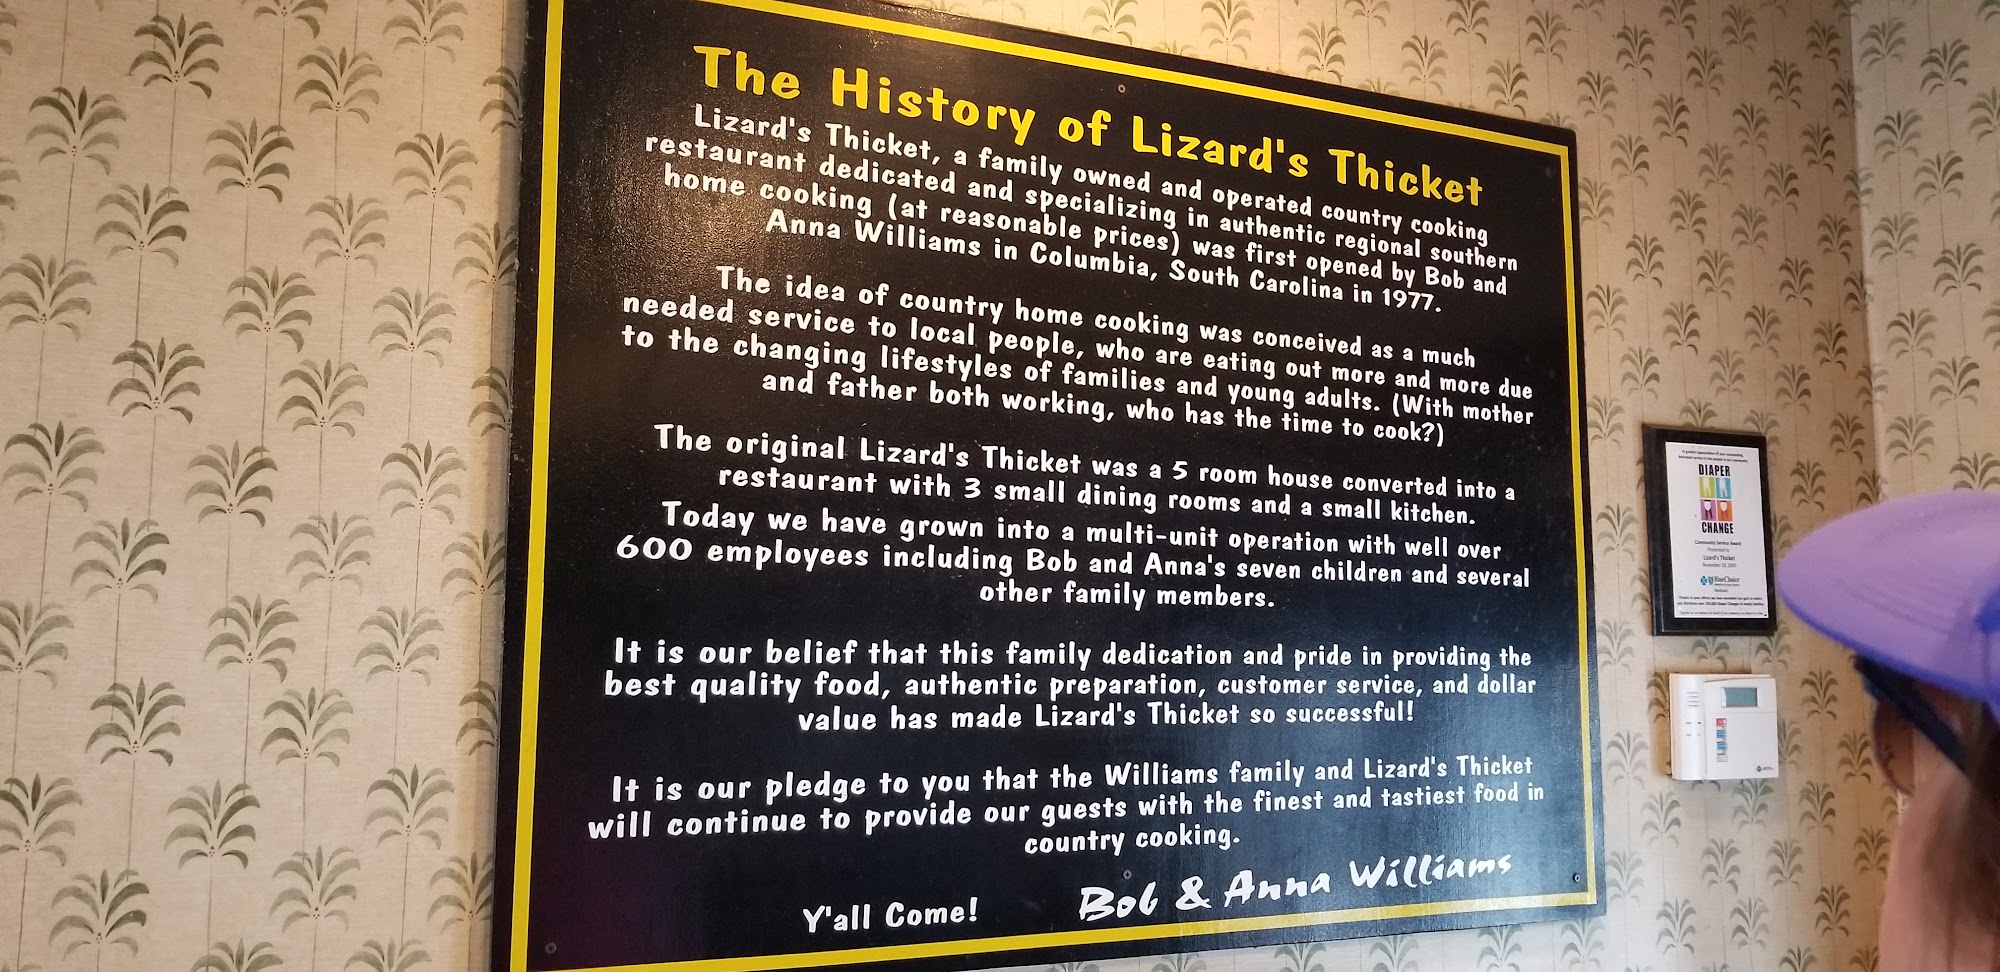 The History of Lizard's Thicket
Lizard's Thicket, a family owned and operated country cooking
restaurant dedicated and specializing in authentic regional southern
home cooking (at reasonable prices) was first opened by Bob and
Anna Williams in Columbia, South Carolina in 1977.
The idea of country home cooking was conceived as a much
needed service to local people, who are eating out more and more due
to the changing lifestyles of families and young adults. (With mother
and father both working, who has the time to cook?)
The original Lizard's Thicket was a 5 room house converted into a
restaurant with 3 small dining rooms and a small kitchen.
Today we have grown into a multi-unit operation with well over
600 employees including Bob and Anna's seven children and several
other family members.
It is our belief that this family dedication and pride in providing the
best quality food, authentic preparation, customer service, and dollar
value has made Lizard's Thicket so successful!
It is our pledge to you that the Williams family and Lizard's Thicket
will continue to provide our guests with the finest and tastiest food in
country cooking.
Y'all Come!
Bob & Anna Williams
DIAPER
CHANGE
Community Service Award
Presented to
Lizard's Thicket
BlueChoice